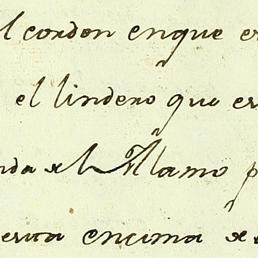 l cordon enque es
el lindero que es
nda el Alamo p
erva encima de